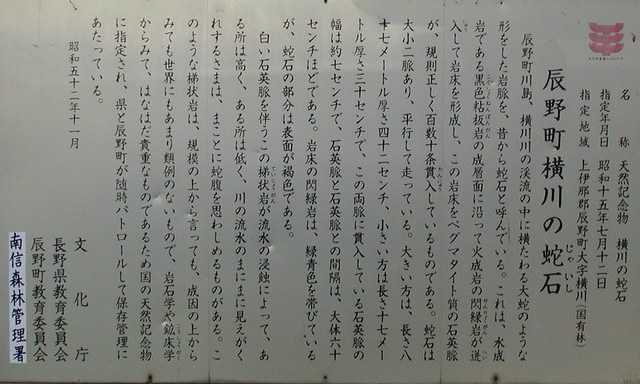 名称 天然記念物 横川の蛇石
指定年月日 昭和十五年七月十二日
指定地域 上伊那郡辰野町大字横川(国有林)
辰野町横川の蛇石
じゃいし
辰野町川島、横川川の渓流の中に横たわる大蛇のような
形をした岩脈を、昔から蛇石と呼んでいる。これは、水成
岩である黒色粘板岩の成層面に沿って火成岩の閃緑岩が迸
入して岩床を形成し、この岩床をペグマタイト質の石英脈
が、規則正しく百数十条貫入しているものである。蛇石は
大小二脈あり、平行して走っている。大きい方は、長さ八
十七メートル厚さ四十二センチ、小さい方は長さ十七メー
トル厚さ三十センチで、この両脈に貫入している石英脈の
幅は約七センチで、石英脈と石英脈との間隔は、大体六十
センチほどである。岩床の閃緑岩は、緑青色を帯びている
が、蛇石の部分は表面が褐色である。
白い石英脈を伴うこの梯状岩が流水の浸蝕によって、あ
る所は高く、ある所は低く、川の流水のまにまに見えがく
れするさまは、まことに蛇腹を思わしめるものがある。こ
のような梯状岩は、規模の上から言っても、成因の上から
みても世界にもあまり類例のないもので、岩石学や鉱床学
からみて、はなはだ貴重なものであるため国の天然記念物
に指定され、県と辰野町が随時パトロールして保存管理に
あたっている。
昭和五十二年十一月
文化庁
長野県教育委員会
辰野町教育委員会
南信森林管理署